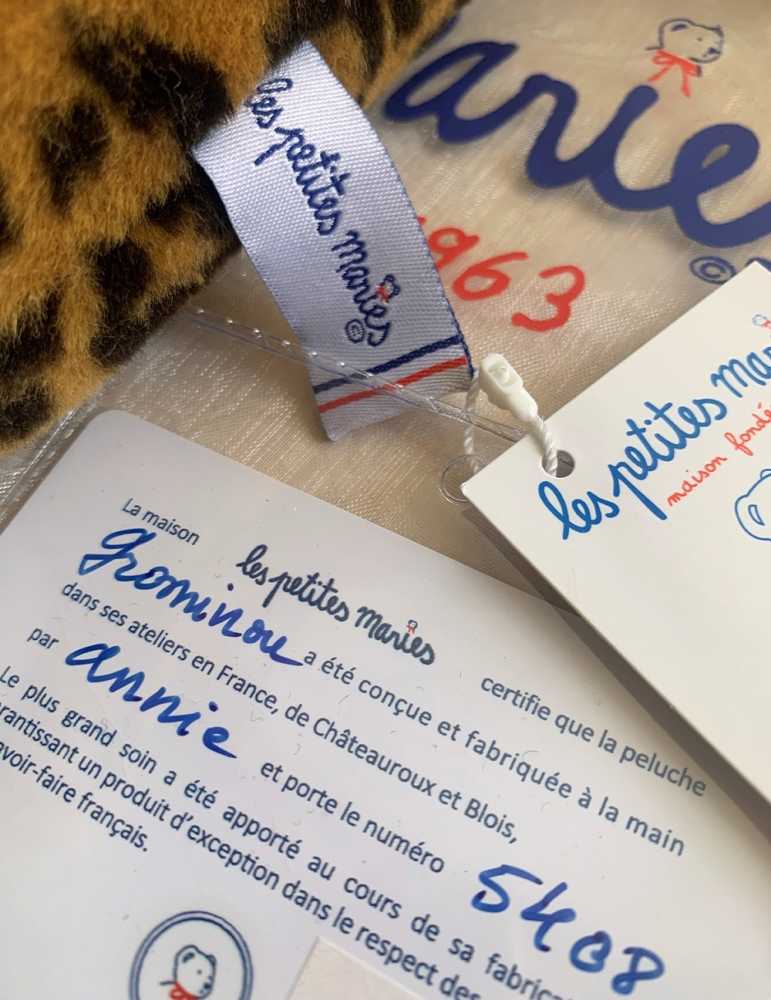 Marie
1963
©
les petites maries
©
les petites
maison fondé
La maison les petites maries certifie que la peluche
Grominou a été conçue et fabriquée à la main
dans ses ateliers en France, de Châteauroux et Blois,
par annie et porte le numéro 5408
Le plus grand soin a été apporté au cours de sa fabric
rantissant un produit d'exception dans le respect des
avoir-faire français.